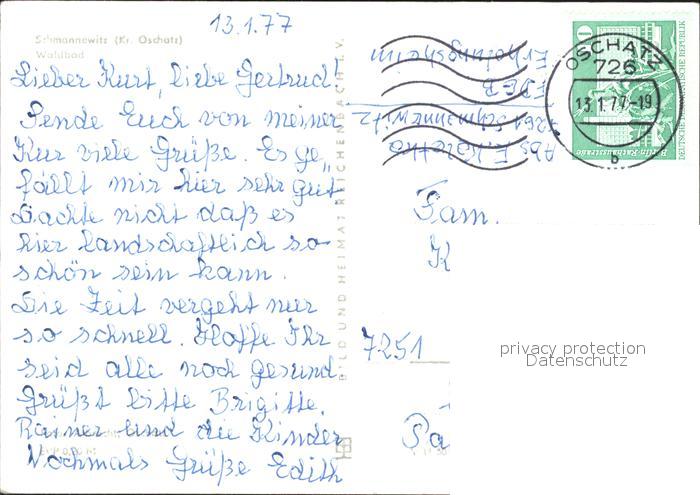 13.1.77
Schmannewitz (Kr. Oschatz)
Waldbad
Lieber Kurt, liebe Gertrud!
Sende Euch von meiner
Kur viele Grüße. Es ge„
fällt mir hier sehr gut
Dachte nicht daß es
hier landschaftlich so
schön sein kann.
Die Zeit vergeht nur
so schnell. Hoffe Ihr
seid alle noch gesund
Grüßt bitte Brigitte,
Rainer und die Kinder
Nochmals Grüße Edith
BILD UND HEIMAT REICHENBACH I. V.
Abs. E.
7261 Schmannewitz
FDGB
Erholungsheim
OSCHATZ
726
13.1.77-19
b
10
DEUTSCHE DEMOKRATISCHE REPUBLIK
Berlin · Rathausstraße
Fam.
K
7251
Pa
privacy protection
Datenschutz